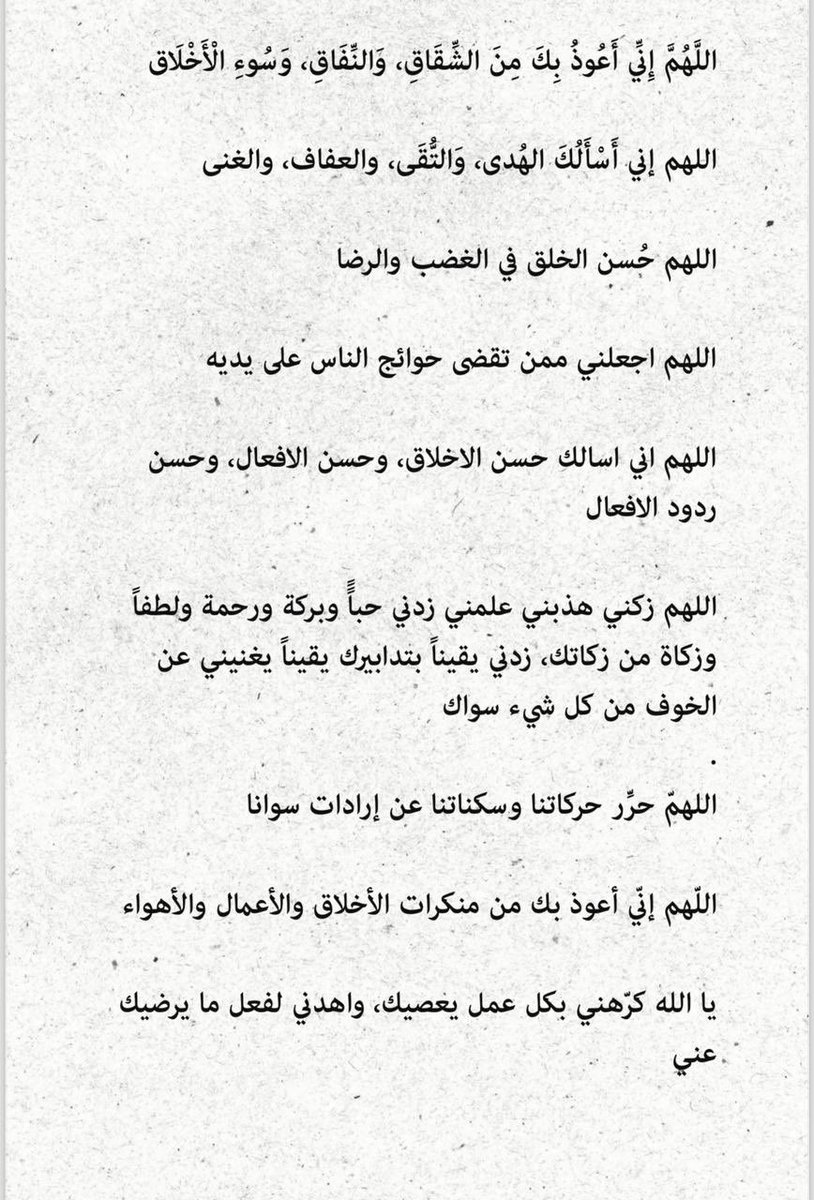 اللَّهُمَّ إِنِّي أَعُوذُ بِكَ مِنَ الشِّقَاقِ، وَالنِّفَاقِ، وَسُوءِ الْأَخْلَاق
اللهم إني أَسْأَلُكَ الهُدى، وَالتُّقَى، والعفاف، والغنى
اللهم حُسن الخلق في الغضب والرضا
اللهم اجعلني ممن تقضى حوائج الناس على يديه
اللهم اني اسالك حسن الاخلاق، وحسن الافعال، وحسن
ردود الافعال
اللهم زكني هذبني علمني زدني حباًً وبركة ورحمة ولطفاً
وزكاة من زكاتك، زدني يقيناً بتدابيرك يقيناً يغنيني عن
الخوف من كل شيء سواك
.
اللهمّ حرِّر حركاتنا وسكناتنا عن إرادات سوانا
اللّهم إنّي أعوذ بك من منكرات الأخلاق والأعمال والأهواء
يا الله كرّهني بكل عمل يعصيك، واهدني لفعل ما يرضيك
عني